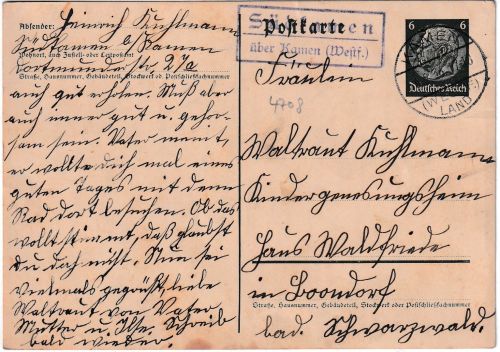 Absender: Heinrich Kuhlmann
Südkamen b/Kamen
Wohnort, auch Zustell- oder Leitpostamt
Dortmunderstr. 2/a
Straße, Hausnummer, Gebäudeteil, Stockwerk od. Postschließfachnummer
auch gut erholen. Muß aber
auch immer gut u. gehor-
sam sein. Vater meint,
er wollte dich mal eines
guten Tages mit dem
Rad dort besuchen. Ob das
wohl stimmt, daß glaubst
du doch nicht. Nun sei
vielmals gegrüßt, liebe
Waltraut von Vater,
Mutter u. Ilse. Schreib
bald wieder.
Postkarte
über Kamen (Westf.)
6 6
Deutsches Reich
KAMEN
LAND
Fräulein
4708
Waltraut Kuhlmann
Kindergenesungsheim
Haus Waldfriede
in
Straße, Hausnummer, Gebäudeteil, Stockwerk oder Postschließfachnummer
bad. Schwarzwald.